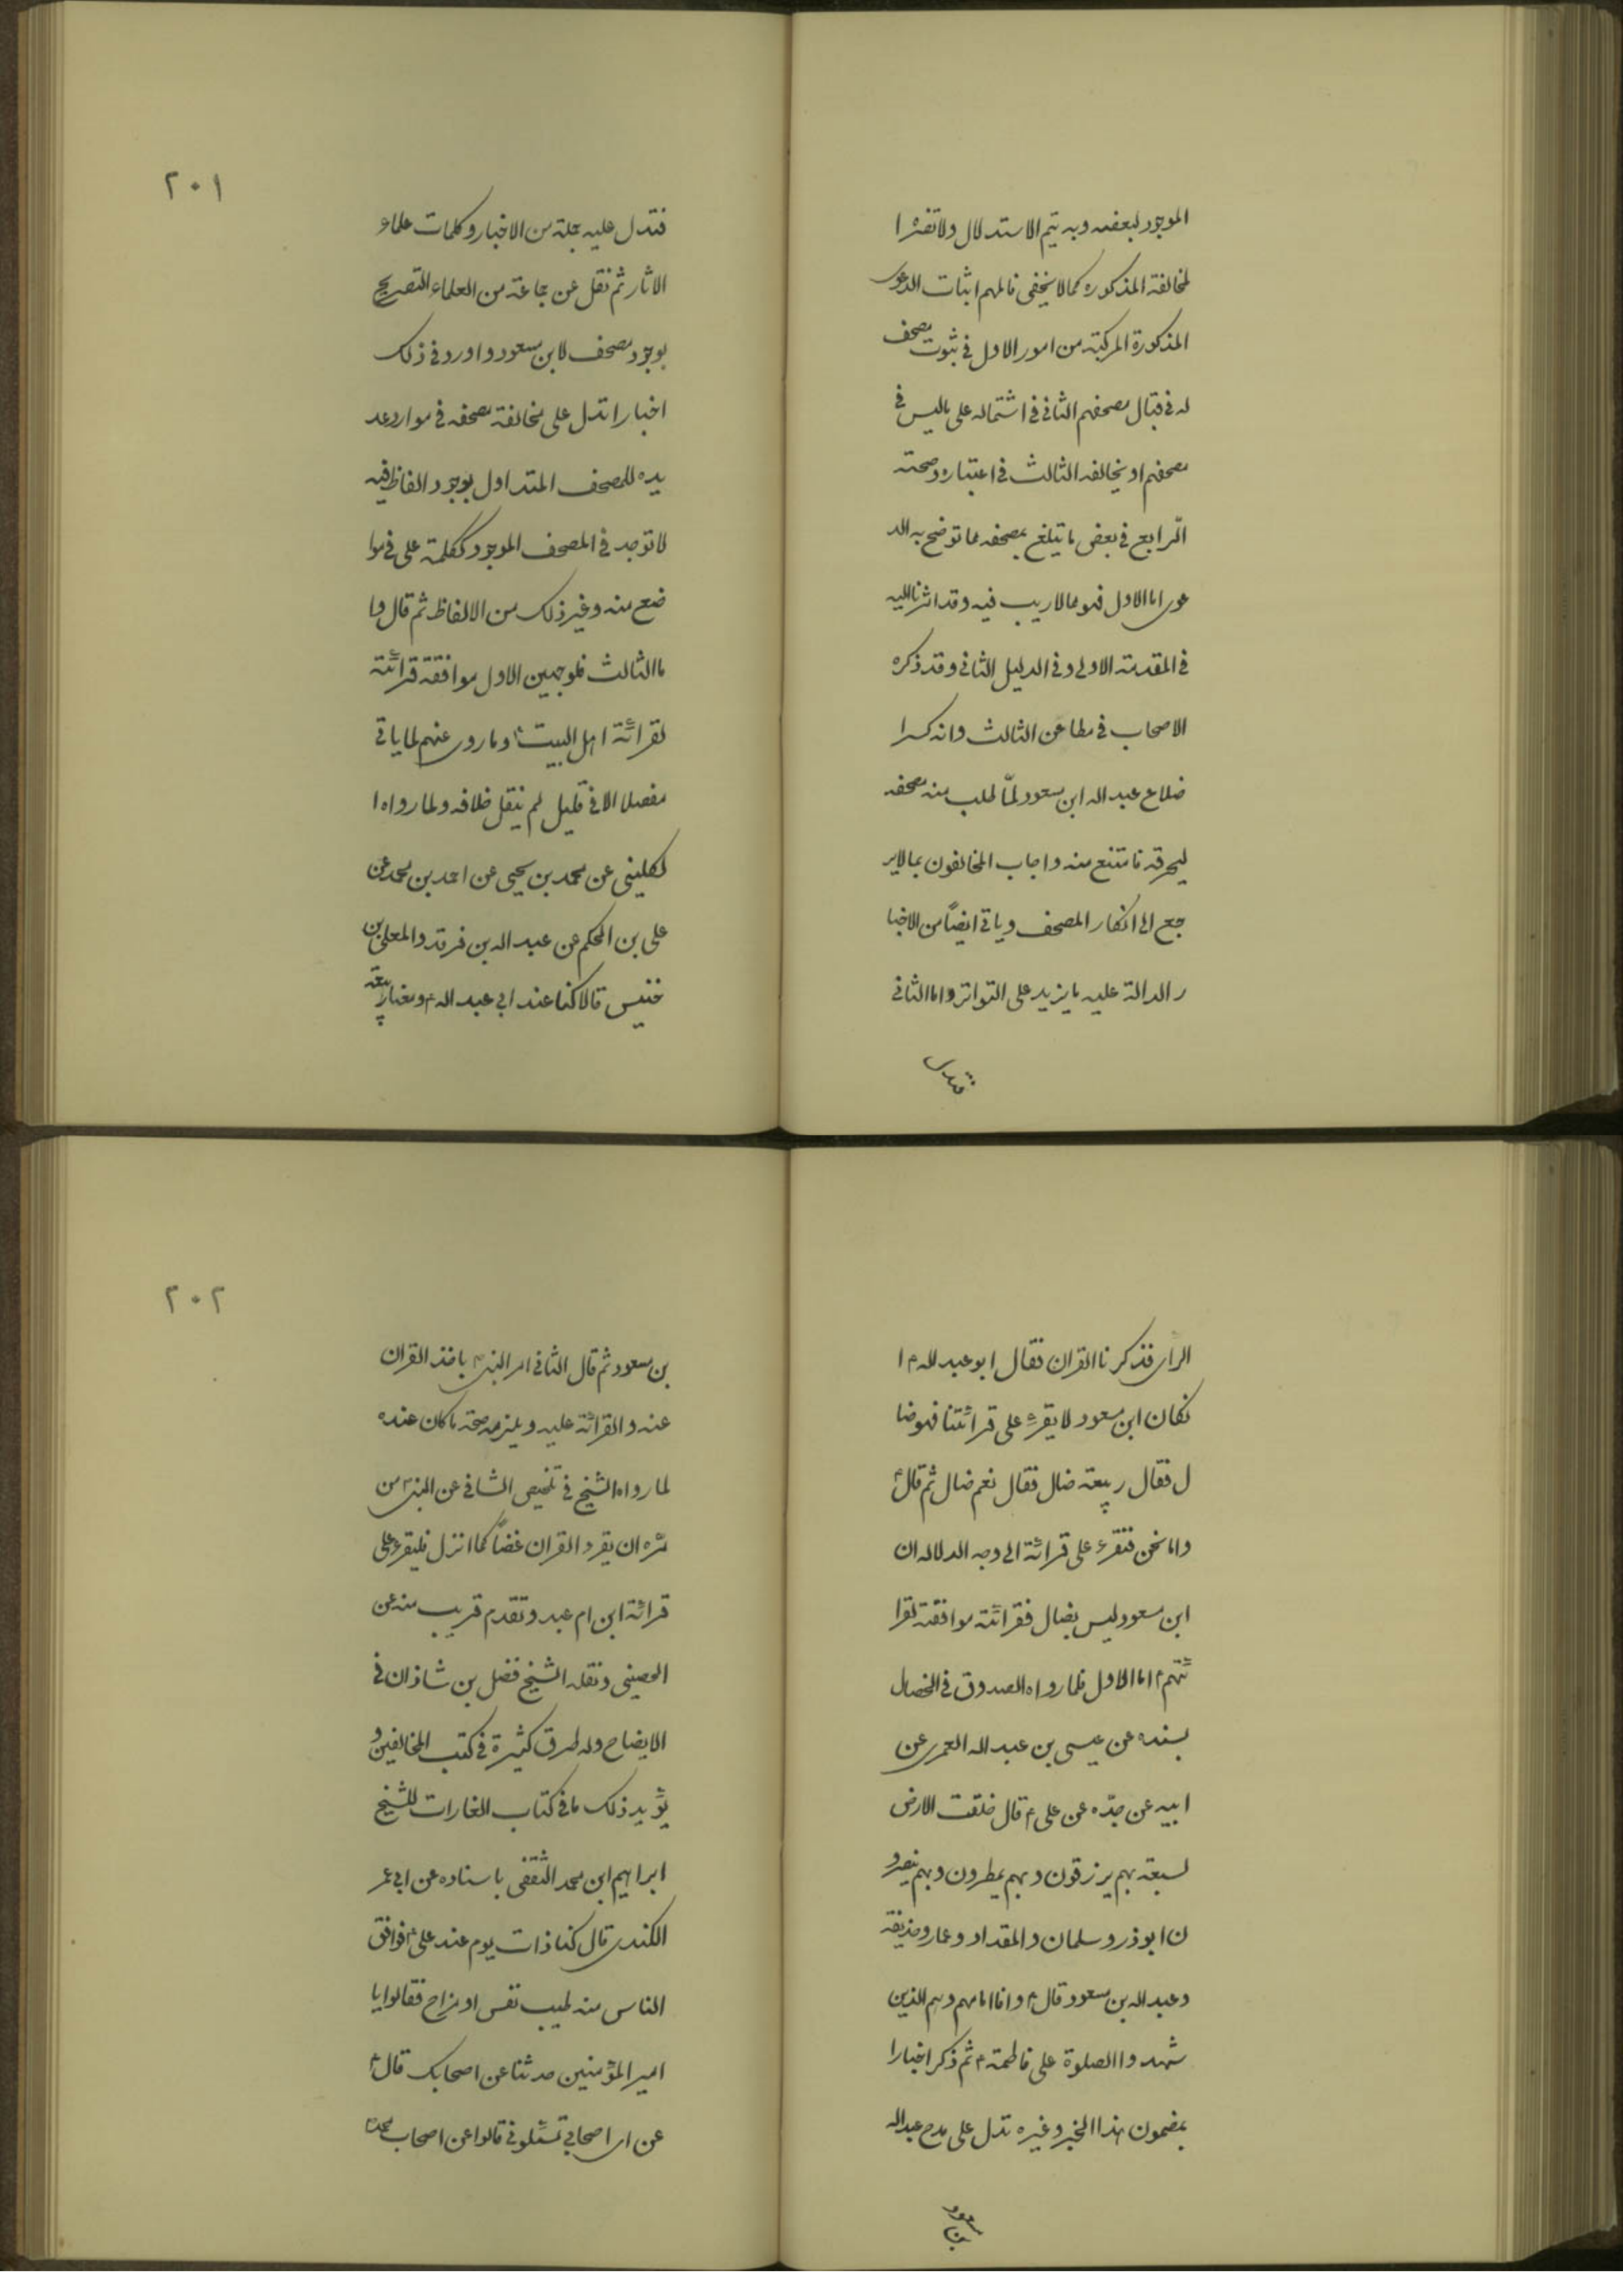 الموجود لبعضه وبه يتم الاستدلال ولا تضر ا
لمخالفة المذكوره كما لا يخفى فالمهم اثبات الدعوى
المذكورة المركبة من امور الاول في ثبوت مصحف
له في قبال مصحفهم الثاني في اشتماله على ما ليس في
مصحفهم او يخالفه الثالث في اعتباره وصحته
الرّابع في بعض ما يتلغ بمصحفه مما توضح به الد
عوى اما الاول فهو مما لا ريب فيه وقد اشرنا اليه
في المقدمة الاولى وفي الدليل الثاني وقد ذكره
الاصحاب في مطاعن الثالث وانه كسر ا
ضلاع عبد اله ابن مسعود لمّا طلب منه مصحفه
ليحرقه فامتنع منه واجاب المخالفون بما لا ير
جع الى انكار المصحف وياتي ايضاً من الاخبا
ر الدالة عليه ما يزيد على التواتر واما الثاني
فتدل
٢٠١
فتدل عليه جملة من الاخبار وكلمات علماء
الاثار ثم نقل عن جماعة من العلماء التصريح
بوجود مصحف لابن مسعود واورد في ذلك
اخبارا تدل على مخالفة مصحفه في موارد عد
يده للمصحف المتداول بوجود الفاظ فيه
لا توجد في المصحف الموجود ككلمة على في موا
ضع منه وغير ذلك من الالفاظ ثم قال وا
ما الثالث فلوجهين الاول موافقة قرائته
لقرائة اهل البيت ع وما روى عنهم لما ياتي
مفصلا الا في قليل لم ينقل خلافه ولما رواه ا
لكليني عن محمد بن يحيى عن احمد بن محمد عن
على بن الحكم عن عبد اله بن فرقد والمعلى بن
خنيس قالا كنا عند ابي عبد اله ع ومعنا ربيعة
الرأى فذكرنا القران فقال ابو عبد لله ع ا
نكان ابن مسعود لا يقرء على قرائتنا فهو ضا
ل فقال ربيعة ضال فقال نعم ضال ثم قال ع
واما نحن فنقرء على قرائة ابى وجه الدلاله ان
ابن مسعود ليس بضال فقرائته موافقة لقرا
ئتهم ع اما الاول فلما رواه الصدوق في الخصال
بسنده عن عيسى بن عبد اله العمرى عن
ابيه عن جدّه عن على ع قال خلقت الارض
لسبعة بهم يرزقون وبهم يمطرون وبهم ينصرو
ن ابوذر وسلمان والمقداد وعمار وحذيفة
وعبد اله بن مسعود قال ع وانا امامهم وهم الذين
شهدوا الصلوة على فاطمة ع ثم ذكر اخبارا
بمضمون هذا الخبر وغيره تدل على مدح عبد اله
بن مسعود
٢٠٢
بن مسعود ثم قال الثاني امر النبى ص باخذ القران
عنه والقرائة عليه ويلزمه صحة ما كان عنده
لما رواه الشيخ في تلخيص الشافي عن النبى ص من
سرّه ان يقرء القران غضاً كما انزل فليقرء على
قرائة ابن ام عبد وتقدم قريب منه عن
الحضينى ونقله الشيخ فضل بن شاذان في
الايضاح وله طرق كثيرة في كتب المخالفين و
يؤيد ذلك ما في كتاب الغارات للشيخ
ابراهيم ابن محمد الثقفى باسناده عن ابي عمر
الكندى قال كنا ذات يوم عند على ع فوافق
الناس منه طيب نفس او مزاح فقالوا يا
امير المؤمنين حدثنا عن اصحابك قال ع
عن اى اصحابي تسئلوني قالوا عن اصحاب محمد ص